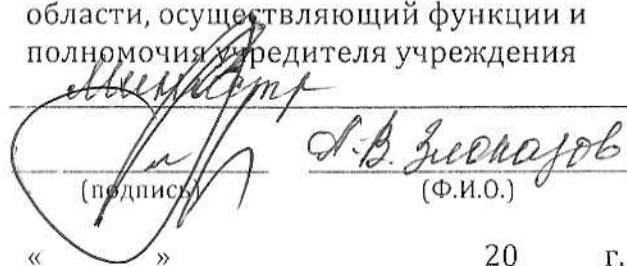 области, осуществляющий функции и
полномочия учредителя учреждения
Министр
А.В. Злоказов
(подпись) (Ф.И.О.)
« » 20 г.